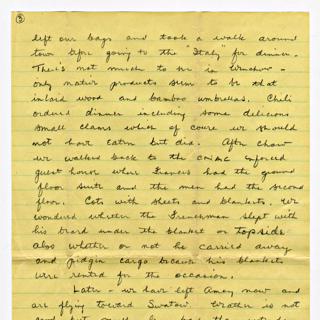 ③
left our bags and took a walk around
town before going to the "Italy" for dinner.
There's not much to see in Wenchow -
only native products seem to be that
inlaid wood and bamboo umbrellas. Chili
ordered dinner including some delicious
small clams which of course we should
not have eaten but did. After chow
we walked back to the CNAC enforced
guest house where Frances had the ground
floor suite and the men had the second
floor. Cots with sheets and blankets. We
wondered whether the Frenchman slept with
his beard under the blanket or topside
also whether or not he carried away
any pidgin cargo because his blankets
were rented for the occasion.
Later - we have left Amoy now and
are flying toward Swatow. Weather is not